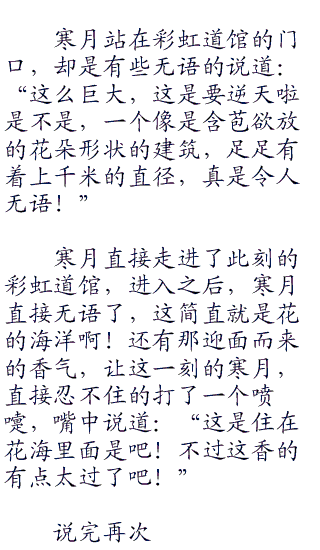 寒月站在彩虹道馆的门
口，却是有些无语的说道：
“这么巨大，这是要逆天啦
是不是，一个像是含苞欲放
的花朵形状的建筑，足足有
着上千米的直径，真是令人
无语！”
寒月直接走进了此刻的
彩虹道馆，进入之后，寒月
直接无语了，这简直就是花
的海洋啊！还有那迎面而来
的香气，让这一刻的寒月，
直接忍不住的打了一个喷
嚏，嘴中说道：“这是住在
花海里面是吧！不过这香的
有点太过了吧！”
说完再次